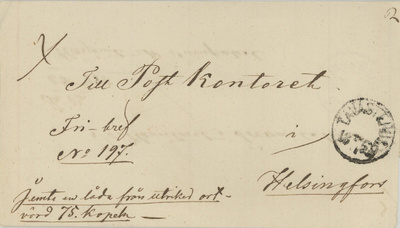 2
Till Post Kontoret
Fri-bref
No 197.
i
Helsingfors
Jemte en låda från utrikes ort
värd 75. kopek
TAVASTEHUS